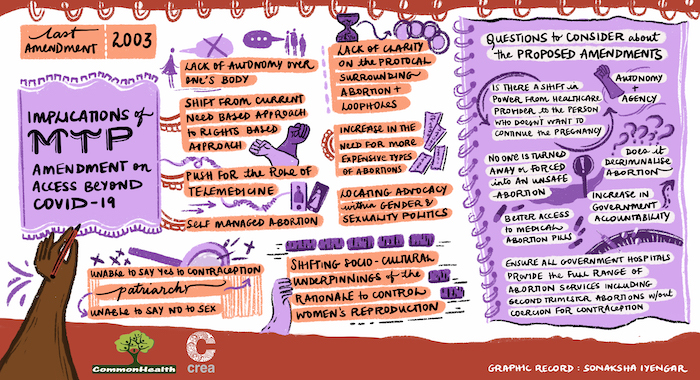 Last
Amendment
2003
Implications of
MTP
Amendment on
Access Beyond
COVID-19
Lack of autonomy over
one's body
Shift from current
need based approach
to rights based
approach
Push for the role of
telemedicine
Self managed abortion
Unable to say yes to contraception
patriarchy
Unable to say no to sex
Lack of clarity
on the protocal
surrounding
abortion +
loopholes
Increase in the
need for more
expensive types
of abortions
Locating advocacy
within gender &
sexuality politics
Shifting socio-cultural
underpinnings of the
rationale to control
women's reproduction
Questions to consider about
the proposed amendments
Is there a shift in
power from healthcare
provider to the person
who doesn't want to
continue the pregnancy
Autonomy
+
Agency
No one is turned
away or forced
into an unsafe
abortion
Does it
decriminalise
abortion
Better access
to medical
abortion pills
Increase in
government
accountability
Ensure all government hospitals
provide the full range of
abortion services including
second trimester abortions w/out
coercion for contraception
CommonHealth
crea
Graphic Record : Sonaksha Iyengar